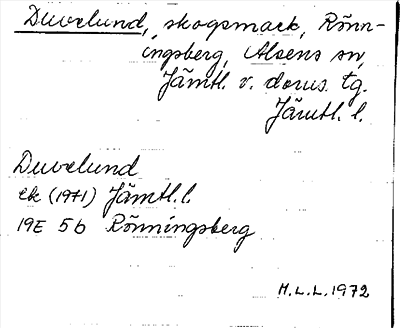 Duvelund, skogsmark, Rönn-
ingsberg, Alsens sn,
Jämtl. v. doms. tg.
Jämtl. l.
Duvelund
ek (1971) Jämtl. l.
19E 5b Rönningsberg
H.L.L. 1972